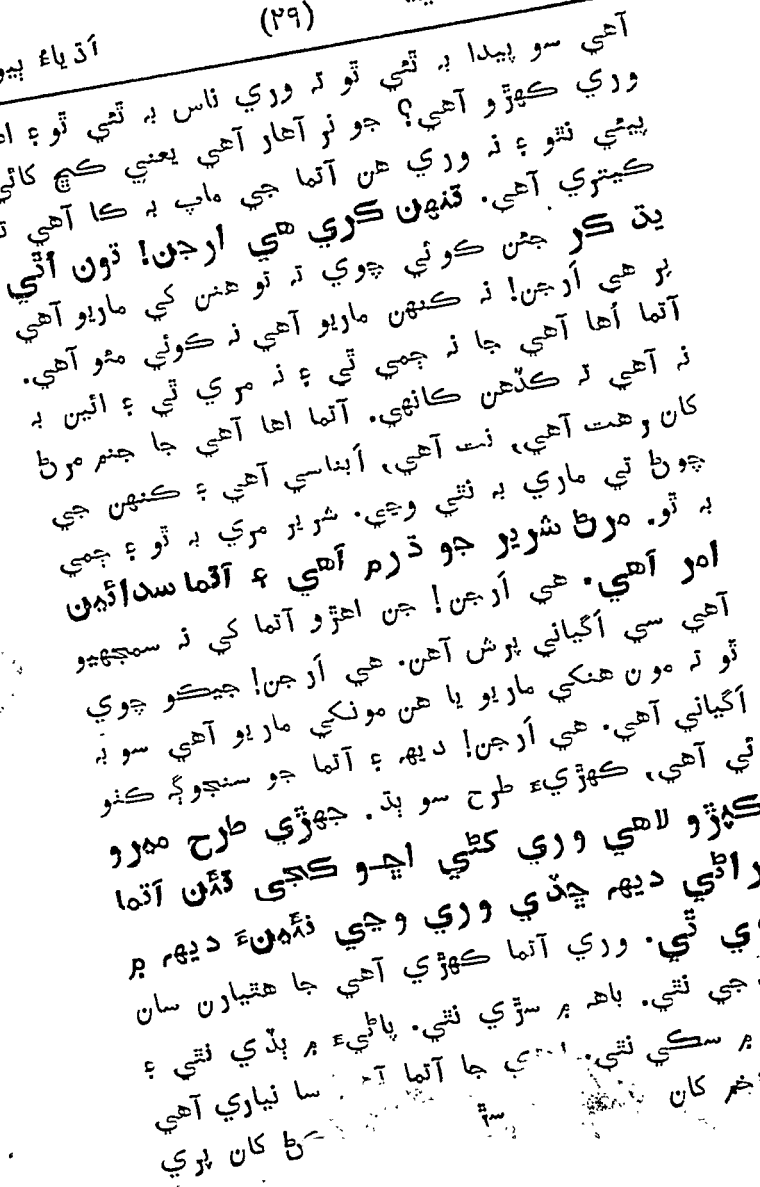 (۲۹)
اَڌياءُ ٻيو
آهي سو پيدا بہ ٿئي ٿو تہ وري ناس بہ ٿئي ٿو ۽
وري ڪهڙو آهي؟ جو نر آهار آهي يعني ڪڇ کائي
پيئي نٿو ۽ نہ وري هن آتما جي ماپ بہ ڪا آهي
ڪيتري آهي. تنهن ڪري هي ارجن! تون اُٿي
يڌ ڪر جئن ڪوئي چوي تہ تو هنن کي ماريو آهي
پر هي اَرجن! نہ ڪنهن ماريو آهي نہ ڪوئي مئو آهي.
آتما اُها آهي جا نہ ڄمي ٿي ۽ نہ مري ٿي ۽ ائين بہ
نہ آهي تہ ڪڏهن ڪانهي. آتما اها آهي جا جنم مرڻ
کان رهت آهي، نت آهي، اَبناسي آهي ۽ ڪنهن جي
چوڻ تي ماري بہ نٿي وڃي. شرير مري بہ ٿو ۽ ڄمي
بہ ٿو. مرڻ شرير جو ڌرم آهي ۽ آتما سدائين
امر آهي. هي اَرجن! جن اهڙو آتما کي نہ سمجهيو
آهي سي اَگياني پرش آهن. هي اَرجن! جيڪو چوي
ٿو تہ مون هنکي ماريو يا هن مونکي ماريو آهي سو بہ
اَگياني آهي. هي اَرجن! ديهہ ۽ آتما جو سنجوڳ ڪٿو
ئي آهي، ڪهڙيءَ طرح سو ٻڌ. جهڙي طرح ميرو
ڪپڙو لاهي وري کڻي اڇو ڪجي تئن آتما
ديهہ ڇڏي وري وڃي نئينءَ ديهہ ۾
ٿي. وري آتما ڪهڙي آهي جا هٿيارن سان
جي نٿي. باهہ ۾ سڙي نٿي. پاڻيءَ ۾ ٻڏي نٿي ۽
۾ سڪي نٿي. جا آتما سا نياري آهي
کان
کان پري